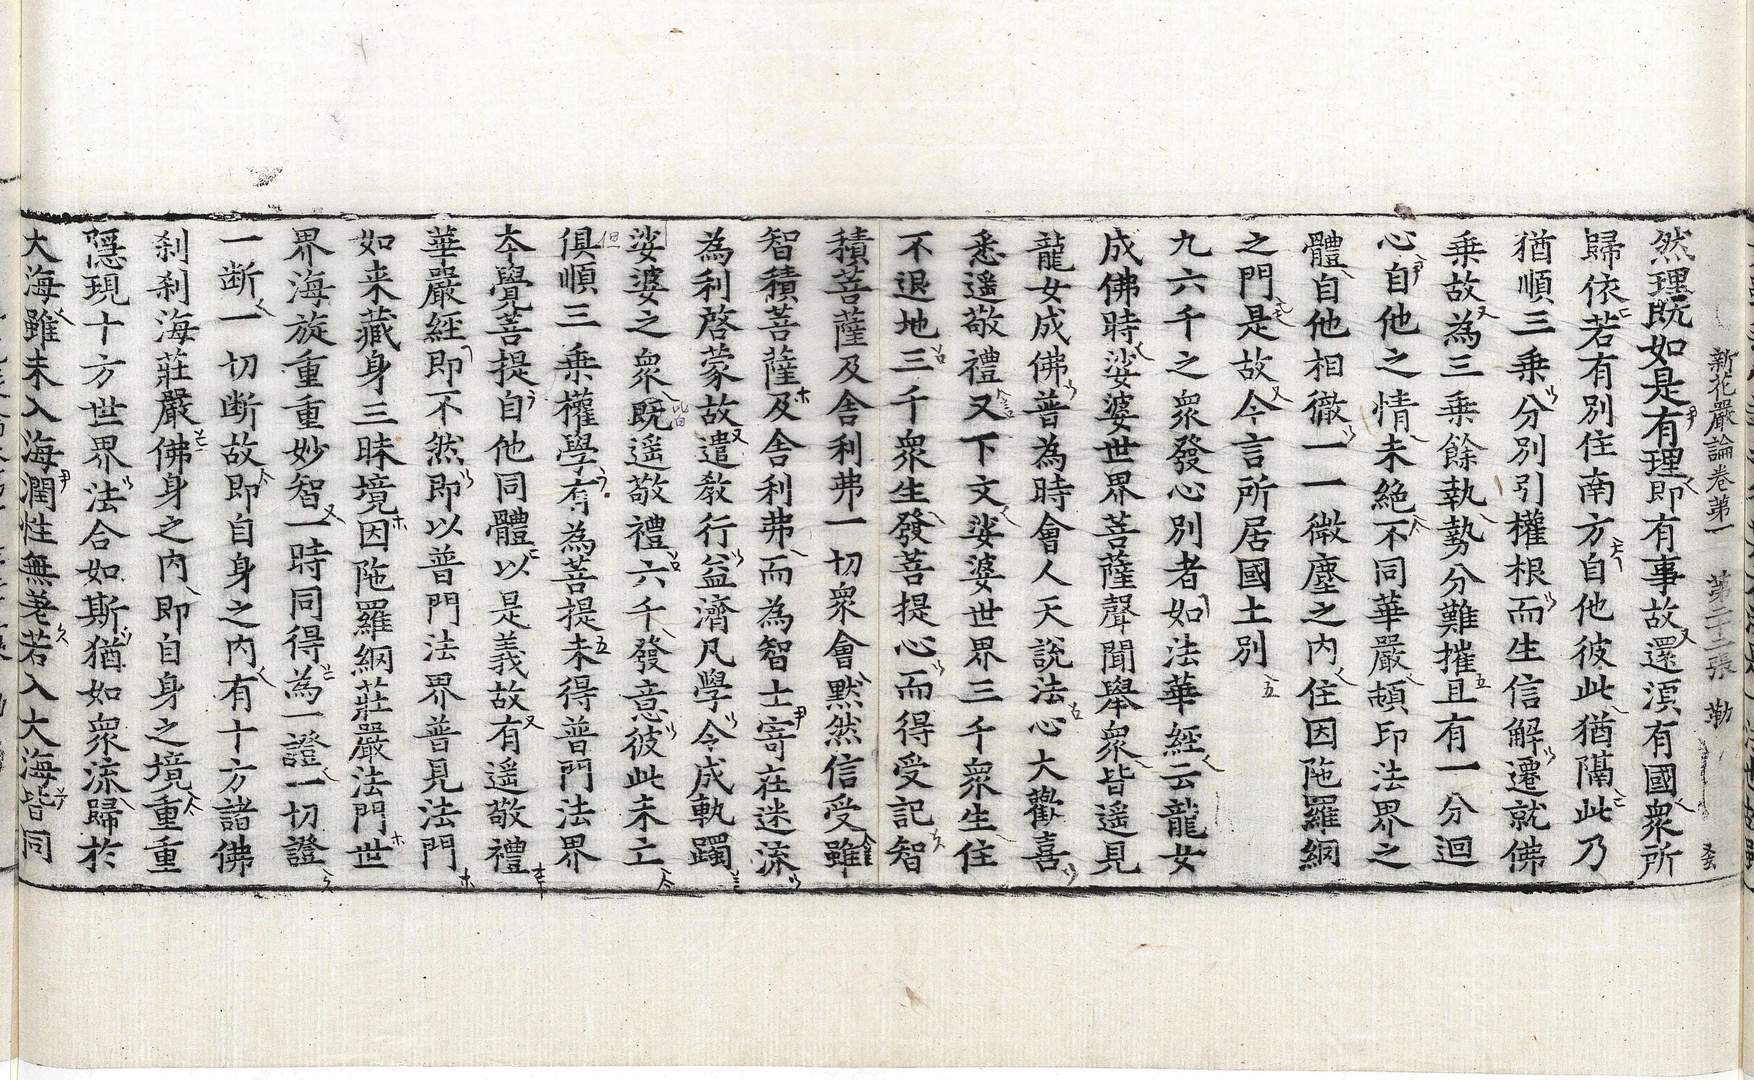 新花嚴論卷第一 第二十二張 勒
然理旣如是有理即有事故還湏有國衆所
歸依若有別住南方自他彼此猶隔此乃
猶順三乗分別引權根而生信解遷就佛
乗故為三乗餘執勢分難摧且有一分迴
心自他之情未絶不同華嚴頓印法界之
體自他相徹一一微塵之内住因陁羅綱
之門是故今言所居國土別
九六千之衆發心別者如法華經云龍女
成佛時娑婆世界菩薩聲聞舉衆皆遥見
龍女成佛普為時會人天說法心大歡喜
悉遥敬禮又下文娑婆世界三千衆生住
不退地三千衆生發菩提心而得受記智
積菩薩及舍利弗一切衆會默然信受雖
智積菩薩及舍利弗而為智士寄在迷流
為利啓蒙故遣教行益濟凡學令成軌躅
娑婆之衆旣遥敬禮六千發意彼此未亡
俱順三乗權學有為菩提未得普門法界
夲覺菩提自他同體以是義故有遥敬禮
華嚴經即不然即以普門法界普見法門
如来藏身三昧境因陁羅綱莊嚴法門世
界海旋重重妙智一時同得為一證一切證
一断一切断故即自身之内有十方諸佛
刹刹海莊嚴佛身之内即自身之境重重
隱現十方世界法合如斯猶如衆流歸於
大海雖未入海潤性無差若入大海皆同